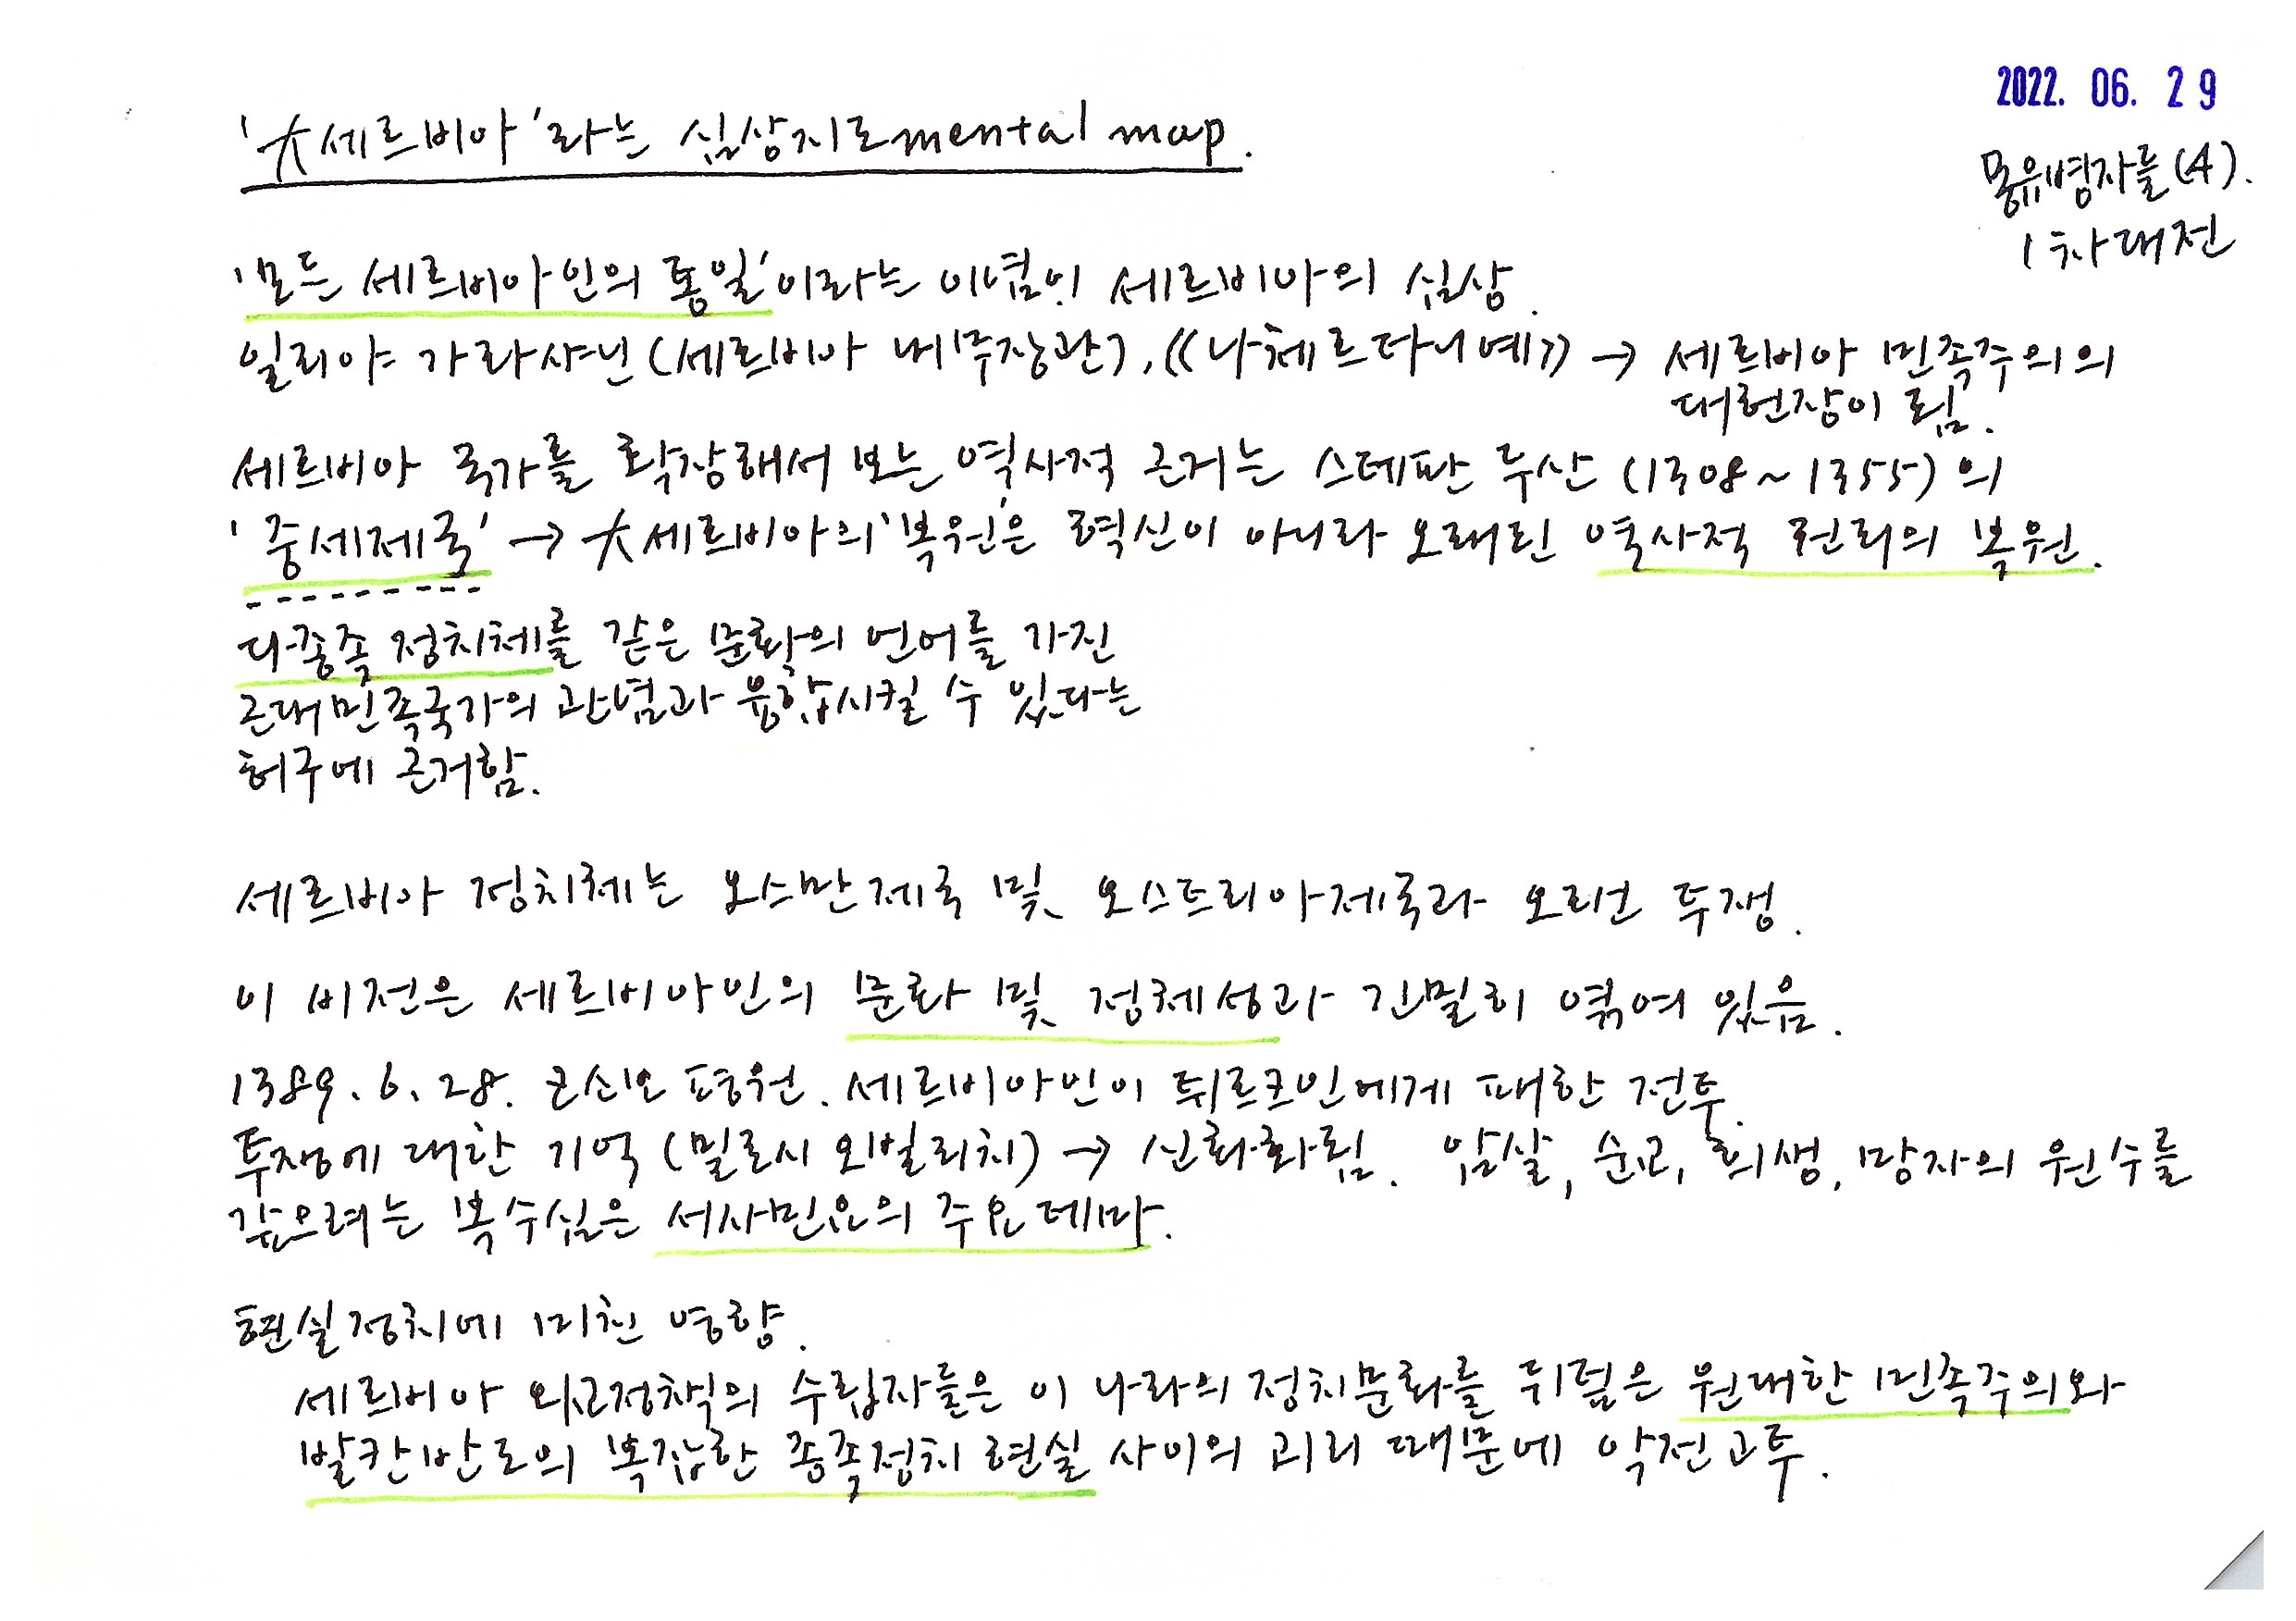 2022. 06. 29
몽유병자들(4).
1차대전
'大세르비아'라는 심상지도mental map.
'모든 세르비아인의 통일'이라는 이념이 세르비아의 심상.
일리야 가라샤닌(세르비아 내무장관), 《나체르타니예》 → 세르비아 민족주의의
대헌장이 됨.
세르비아 국가를 확장해서 보는 역사적 근거는 스테판 두샨 (1308~1355)의
'중세제국' → 大세르비아의 '복원'은 혁신이 아니라 오래된 역사적 권리의 복원.
다종족 정치체를 같은 문화의 언어를 가진
근대민족국가의 관념과 융합시킬 수 있다는
허구에 근거함.
세르비아 정치체는 오스만제국 및 오스트리아제국과 오래 투쟁.
이 비전은 세르비아인의 문화 및 정체성과 긴밀히 엮여 있음.
1389. 6. 28. 코소보 평원. 세르비아인이 튀르크인에게 패한 전투.
투쟁에 대한 기억 (밀로시 오빌리치) → 신화화됨. 암살, 순교, 희생, 망자의 원수를
갚으려는 복수심은 서사민요의 주요 테마.
현실정치에 미친 영향.
세르비아 외교정책의 수립자들은 이 나라의 정치문화를 뒤덮은 원대한 민족주의와
발칸반도의 복잡한 종족정치 현실 사이의 괴리 때문에 악전고투.